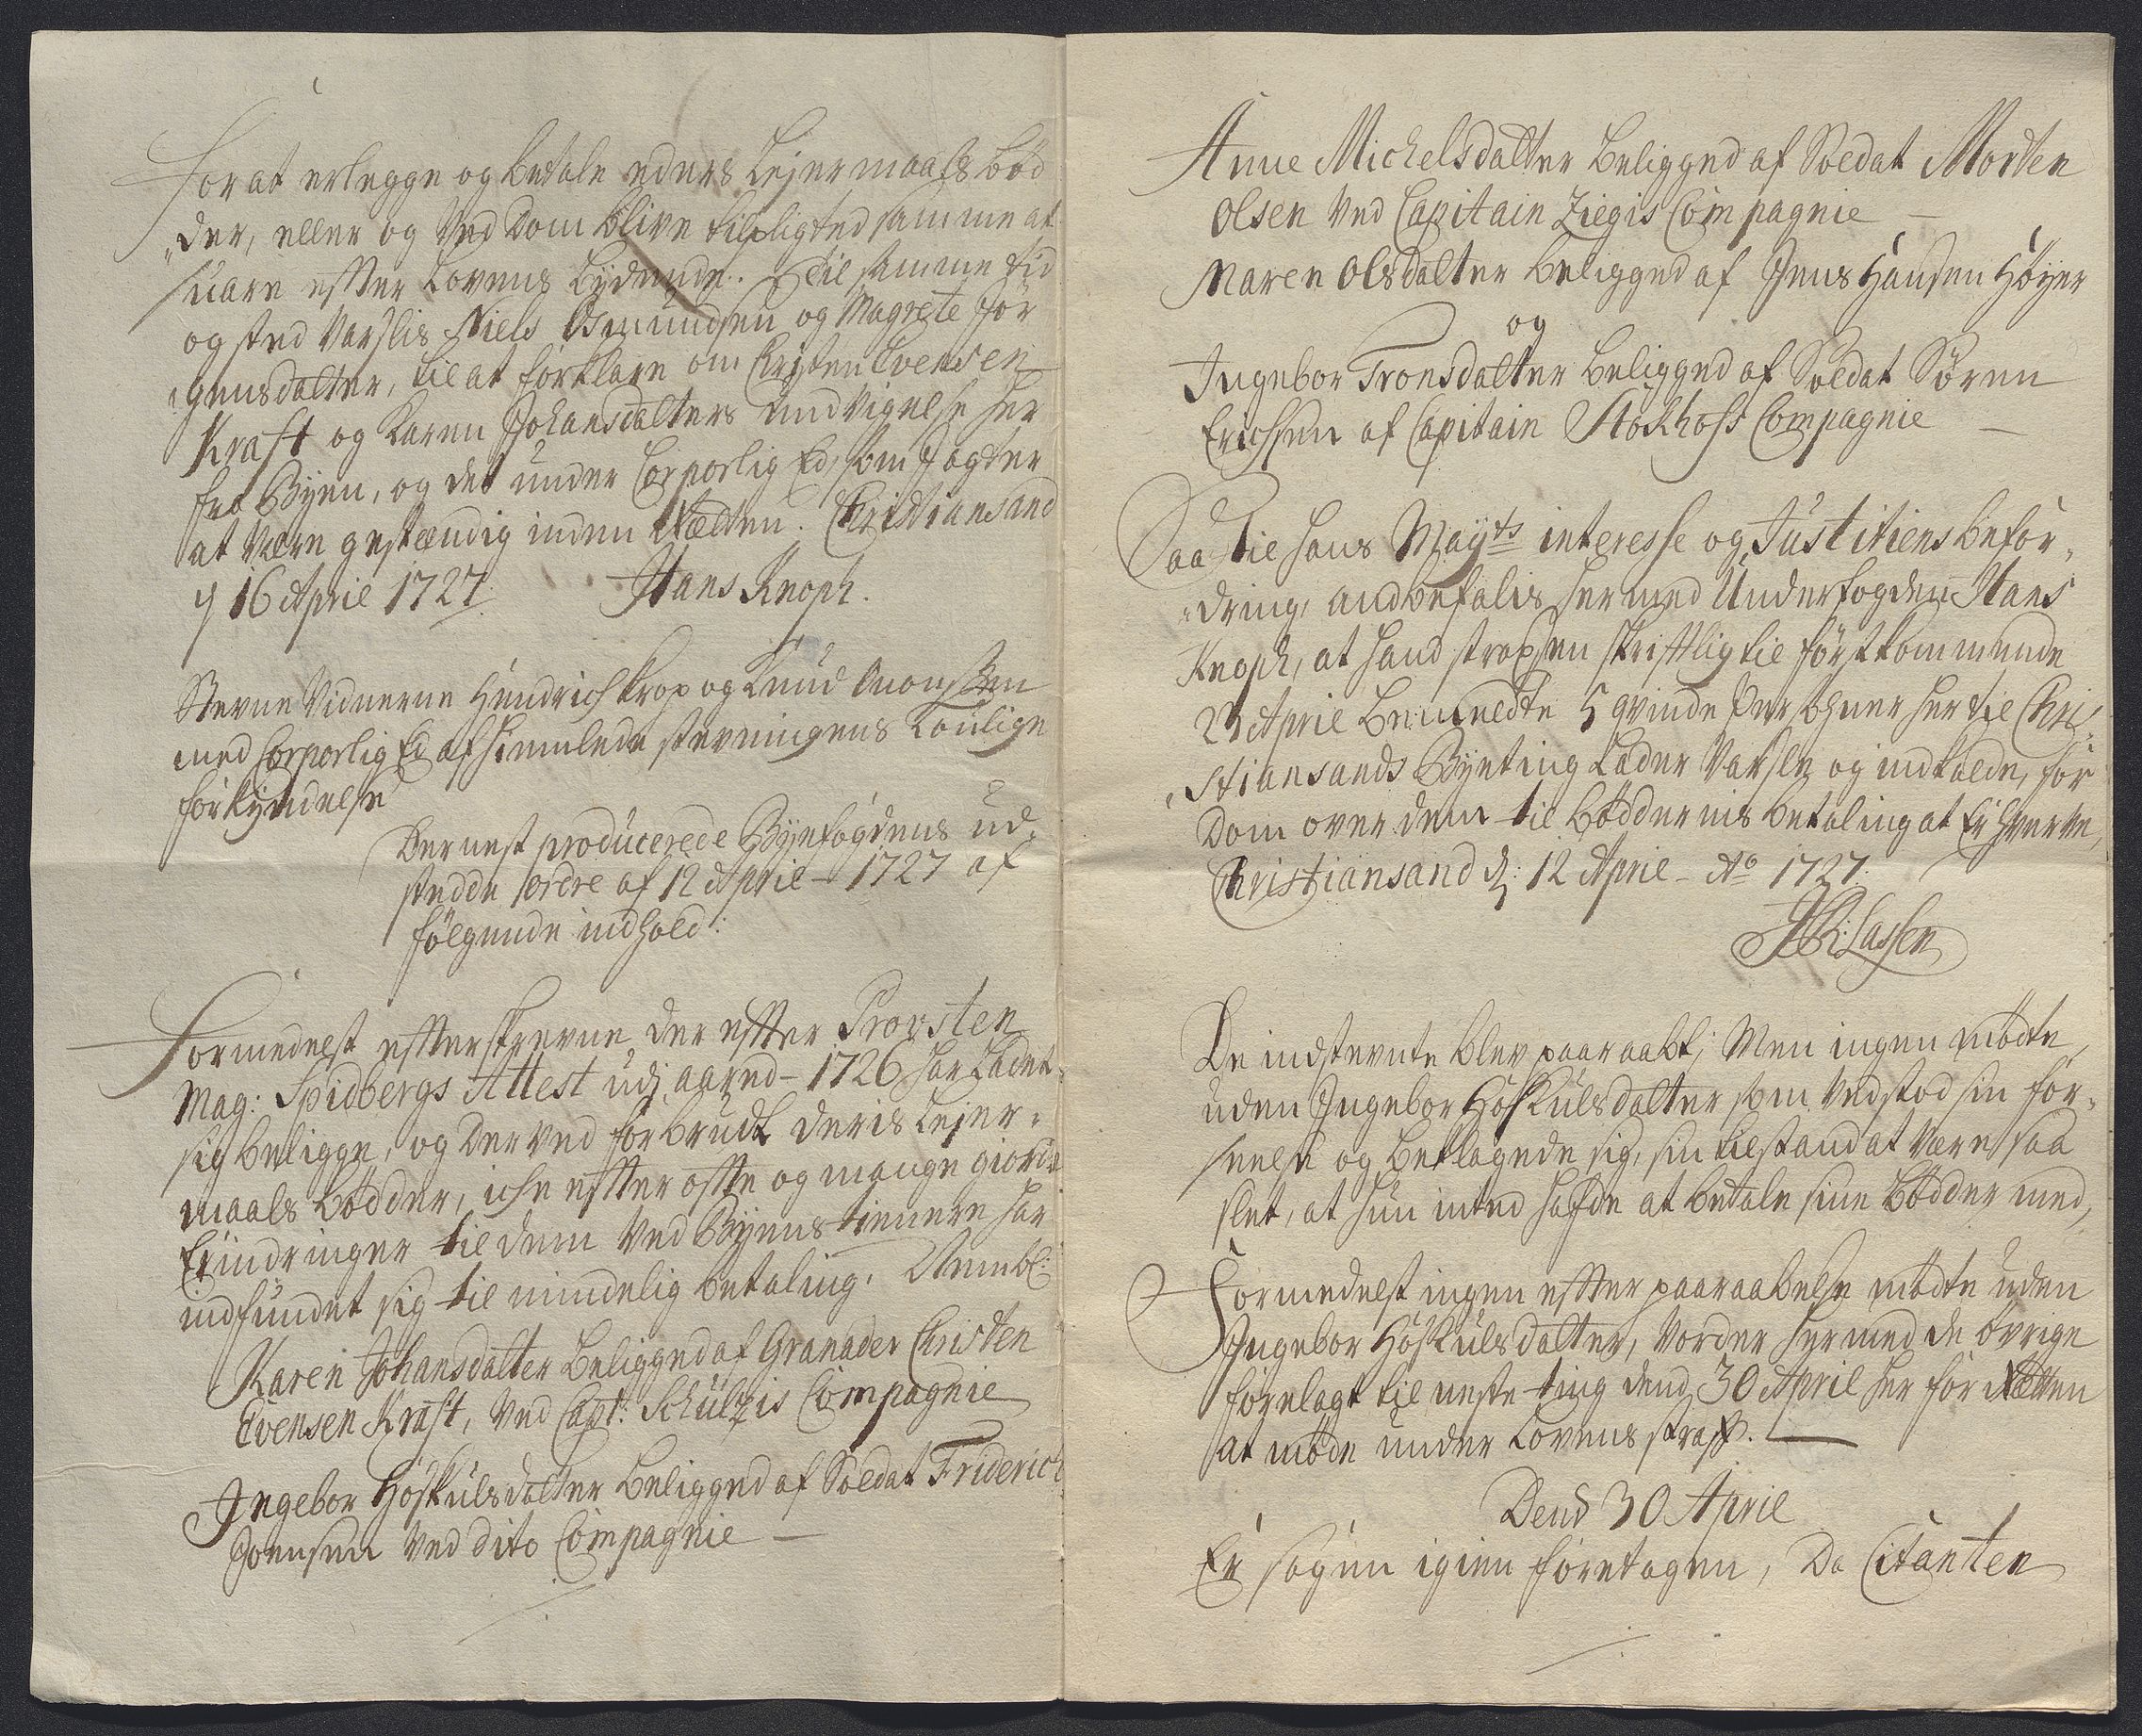 for at erlegge og betale eders Lejermaals bød
„der, eller og ved Dom blive tilpligted samme at
svare efter Lovens Lydende. Til samme tid
og sted varslis Niels Osmundsen og Magrete Jør
„gensdatter, til at forklare om Christen Evensen
Kraft og Karen Johansdatters undvigelse her
fra Byen, og det under Corporlig Eed, som I agter
at være gestændig inden Retten. Christiansand
d 16 April 1727. Hans Knoph.
Stevne Vidnerne Hendrich Krop og Knud
med Corporlig Ed afhiemlede stevningens Lovlige
forkyndelse
Dernest producerede Byefogdens ud„
stedde ordre af 12 April 1727 af
følgende indhold:
Formedelst efterskrevne der efter Provsten
Mag: Spidbergs Attest udj aared 1726 har ladet
sig beligge, og derved forbrudt deris Lejer„
maals bødder, iche efter ofte og mange giorde
Erindringer til dem ved Byens tienere har
indfundet sig til mindelig betaling. Nembl:
Karen Johansdatter beligged af Granader Christen
Evensen Kraft, ved Capt: Schultzis Compagnie
Ingebor Høskulsdatter beligged af Soldat Friderich
Joensen ved dito Compagnie —
Anne Michelsdatter beligged af Soldat Morten
Olsen ved Capitain Ziegis Compagnie —
Maren Olsdatter beligged af Jens Hansen Høyer
og
Ingebor Tronsdatter beligged af Soldat Søren
Erichsen af Capitain Stokhofs Compagnie —
Saa til hans Mayts interesse og Justitiens befor„
„dring, andbefalis hermed Underfogden Hans
Knoph, at hand strax en skriftlig til førstkommende
23 April bemeldte 5 qvinde Persohner her til Chri„
„stiansands Byeting lader varsle og indkalde, for
Dom over dem til bøddernis betaling at Erhverve,
Christiansand d: 12 April Ao 1727.
JR: Lassen
De indstevnte blev paaraabt; Men ingen mødte
uden Ingebor Høskulsdatter som vedstod sin for„
seelse og beklagede sig, sin tilstand at være saa
slet, at hun inted hafde at betale sine bødder med,
Formedelst ingen efter paaraabelse mødte uden
Ingebor Høskulsdatter, vorder hermed de øvrige
forelagt til neste ting dend 30 April her for Retten
at møde under Lovens straf. —
Dend 30 April
Er sagen igien foretagen, Da Citanten